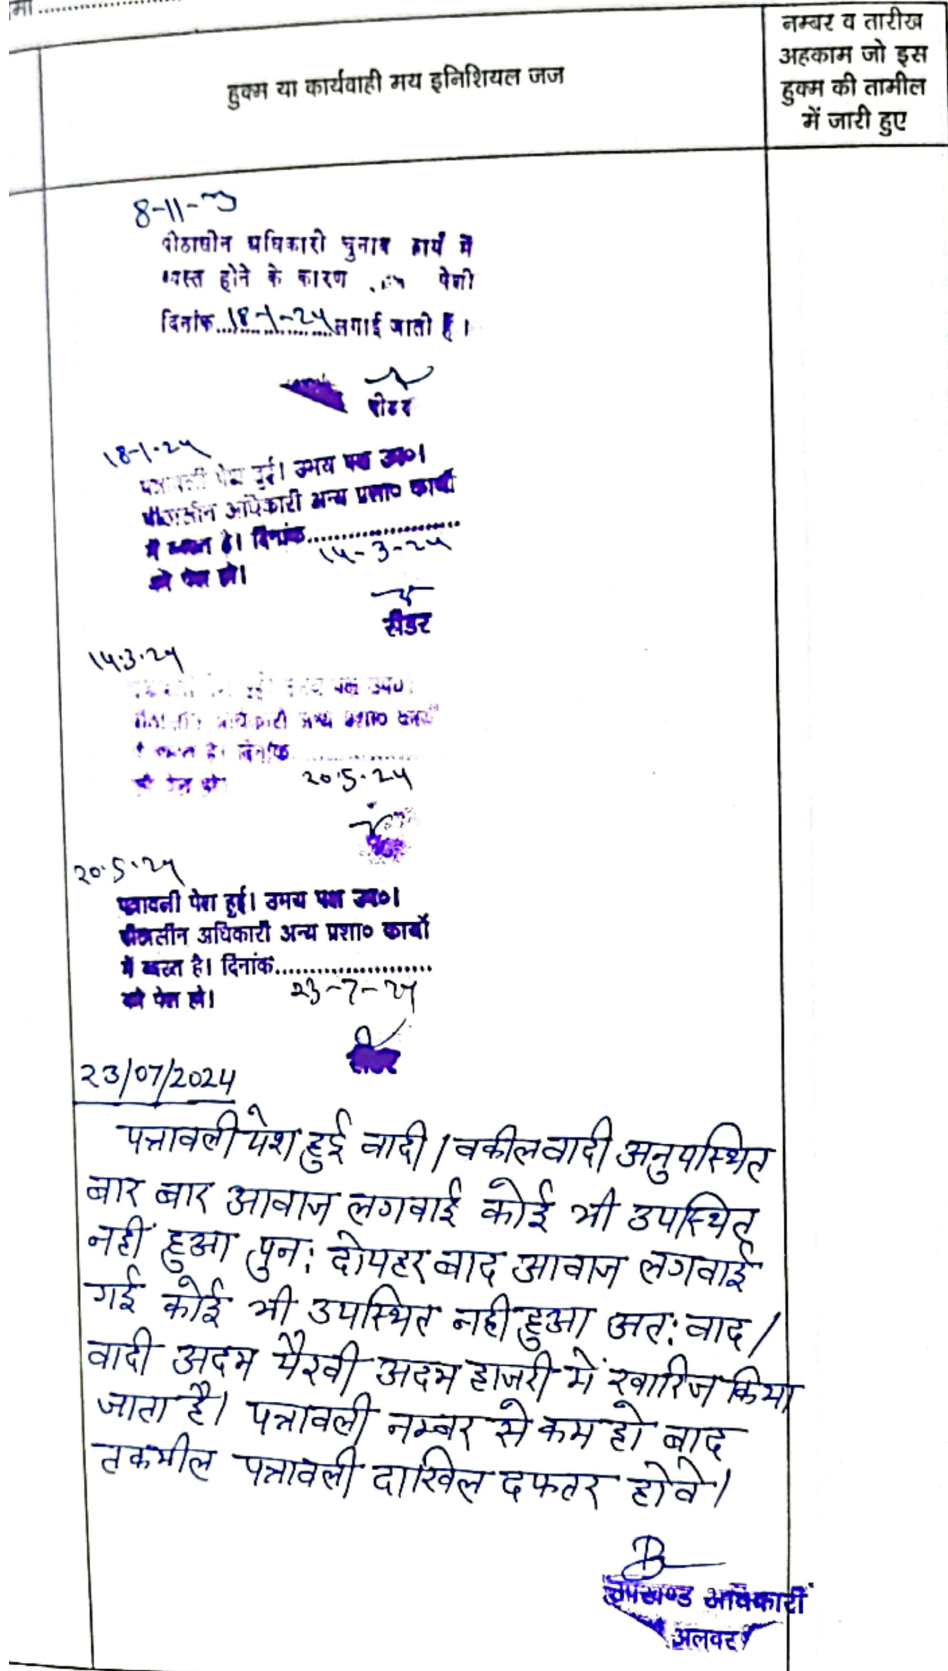 हुक्म या कार्यवाही मय इनिशियल जज
नम्बर व तारीख
अहकाम जो इस
हुक्म की तामील
में जारी हुए
8-11-
पीठासीन अधिकारी चुनाव कार्य में
व्यस्त होने के कारण पेशी
दिनांक...18-1-24...लगाई जाती है।
रीडर
18-1-24
पत्रावली पेश हुई। उभय पक्ष उप०।
पीठासीन अधिकारी अन्य प्रशा० कार्यो
में व्यस्त है। दिनांक....................
14-3-24
को पेश हो।
रीडर
14.3.24
पत्रावली पेश हुई। उभय पक्ष उप०।
पीठासीन अधिकारी अन्य प्रशा० कार्यो
में व्यस्त है। दिनांक....................
को पेश हो। 20.5.24
20.5.24
पत्रावली पेश हुई। उभय पक्ष उप०।
पीठासीन अधिकारी अन्य प्रशा० कार्यो
में व्यस्त है। दिनांक....................
को पेश हो। 23-7-24
रीडर
23/07/2024
पत्रावली पेश हुई वादी / वकील वादी अनुपस्थित
बार बार आवाज लगवाई कोई भी उपस्थित
नही हुआ पुन: दोपहर बाद आवाज लगवाई
गई कोई भी उपस्थित नही हुआ अत: वाद /
वादी अदम पैरवी अदम हाजरी में खारिज किया
जाता है। पत्रावली नम्बर से कम हो बाद
तकमील पत्रावली दाखिल दफतर होवे।
उपखण्ड अधिकारी
अलवर